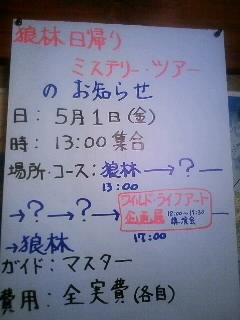 狼林日帰り
ミステリー・ツアー
の お知らせ
日：５月１日(金)
時：13:00 集合
場所・コース：狼林→？→
13:00
→？→？→ワイルド・ライフアート
企画展 18:00〜19:30
講演会
→狼林 17:00
ガイド：マスター
費用：全実費(各自)